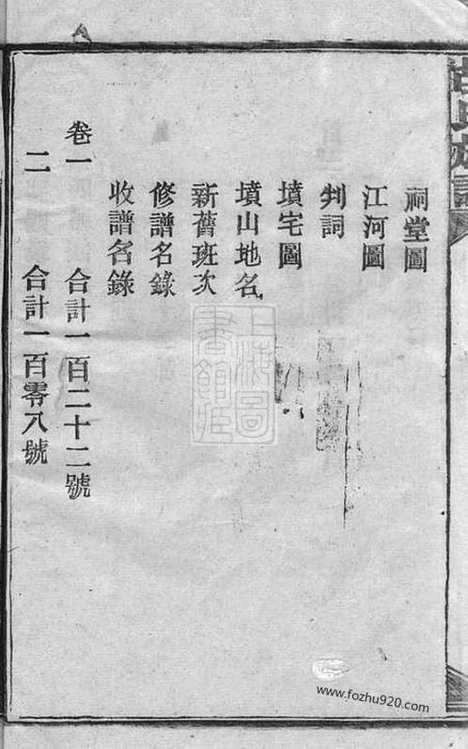 祠堂圖
江河圖
判詞
墳宅圖
墳山地名
新舊班次
修譜名錄
收譜名錄
卷一 合計一百二十二號
二 合計一百零八號
上海圖書館藏
www.fozhu920.com